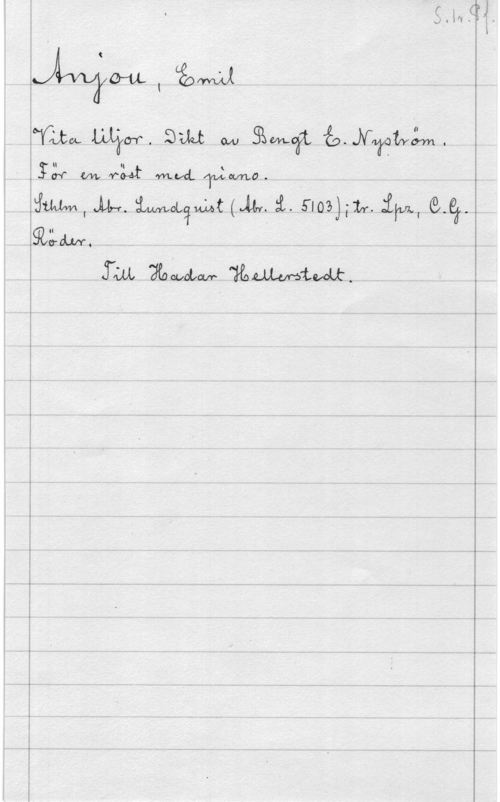 S. tr. Sf.
Anjou, Emil
Vita liljor. Dikt av Bengt E. Nyström.
För en röst med piano.
Sthlm, Abr. Lundquist (Abr. L. 5103); tr. Lpz, C.G.
Röder.
Till Hadar Hellerstedt.